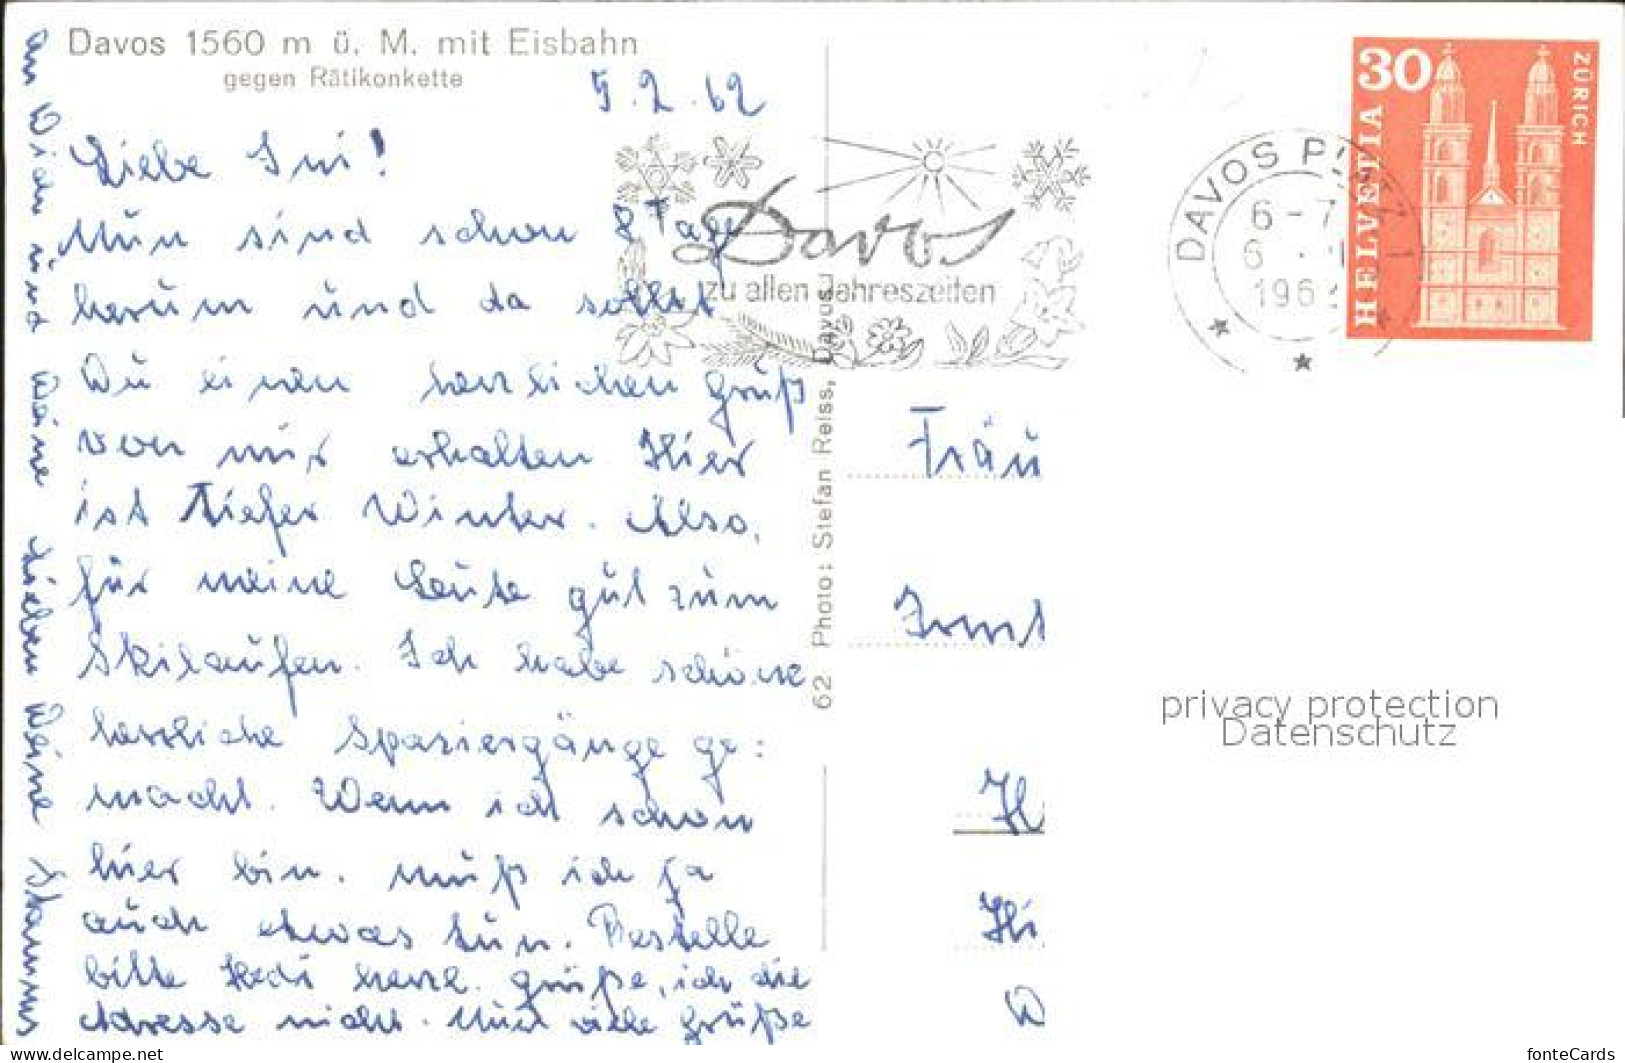 Davos 1560 m ü. M. mit Eisbahn
gegen Rätikonkette
5.2.62
Liebe Irmi!
Nun sind schon 8 Tage
herum und da sollst
Du einen herzlichen Gruß
von mir erhalten. Hier
ist tiefer Winter. Also,
für meine Leute gut zum
Skilaufen. Ich habe schöne
herrliche Spaziergänge ge=
macht. Wenn ich schon
hier bin, muß ich ja
auch etwas tun. Bestelle
bitte Hedi herzl. Grüße, ich die
Adresse nicht. Nun viele Grüße
an Dich und Deine Lieben Deine
Davos
zu allen Jahreszeiten
DAVOS PLATZ 1
6-7
6.
196
HELVETIA
30
ZÜRICH
62 Photo: Stefan Reiss, Davos
Fräu
H
Hi
D
privacy protection
Datenschutz
www.delcampe.net
fonteCards